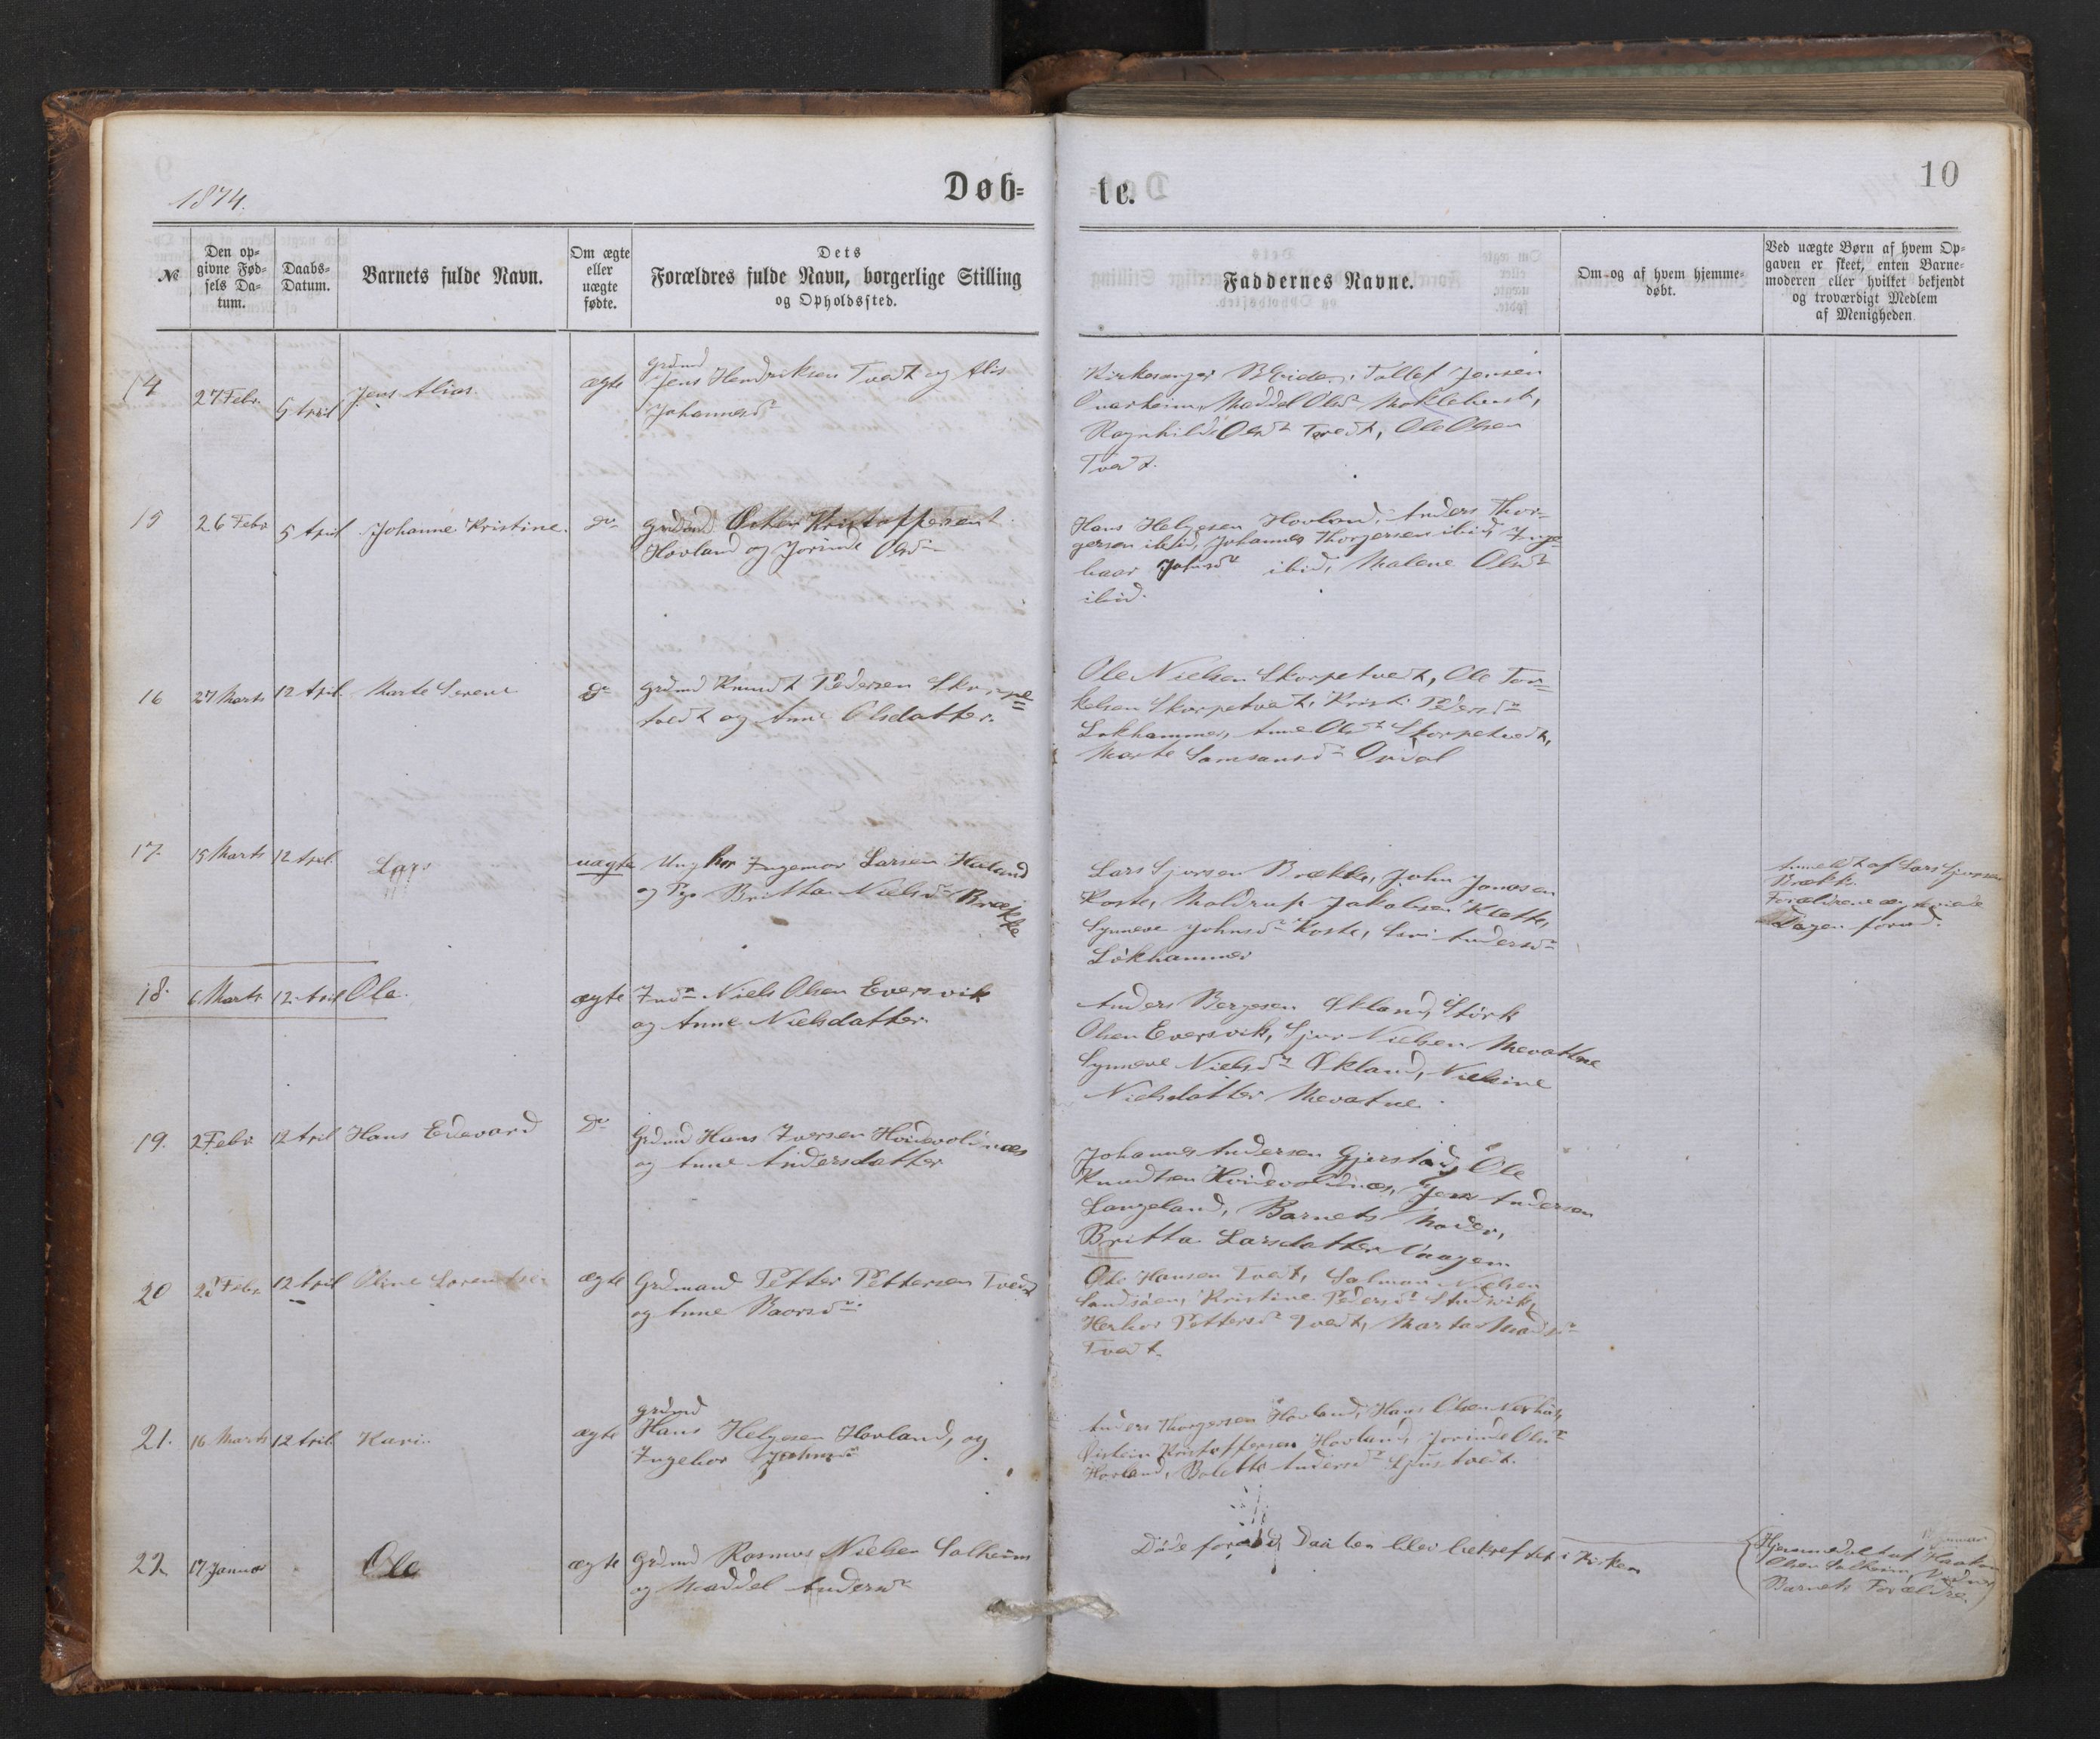 1874.
Døb-
te.
10
№
Den op-
givne Fød-
sels Da-
tum.
Daabs-
Datum.
Barnets fulde Navn.
Om ægte
eller
uægte
fødte.
Dets
Forældres fulde Navn, borgerlige Stilling
og Opholdssted.
Faddernes Navne.
Om og af hvem hjemme-
døbt.
Ved uægte Børn af hvem Op-
gaven er skeet, enten Barne-
moderen eller hvilket bekjendt
og troværdigt Medlem
af Menigheden
14
27 Febr.
5 April
Jens Alias.
ægte
Grdmd
Jens Hendriksen Tvedt og Alis
Johannesdr
Kirkesanger Tollef Jensen
Maddel Olsdr
Ragnhild Olsdr Tvedt, Ole Olsen
Tvedt.
15
26 Febr
5 April
Johanne Kristine.
do
Grdmd Kristoffersen
Hovland og Jorinde Olsdr
Hans Helgesen Hovland, Anders Thor-
gersen ibid, Johannes Thorgersen ibid, Inge-
boar Johnsdr ibid, Malene Olsdr
ibid.
16
27 Marts
12 April
Marte Serene
do
Grdmd Knudt Pedersen Skorpe-
tvedt og Anne Olsdatter.
Ole Nielsen Skorpetvedt, Ole Tor-
kelsen Skorpetvedt, Kristi Pedersdr
Lokhammer, Anne Olsdr Skorpetvedt,
Marte Samsonsdr
17.
15 Marts
12 April
Lars
uægte
Ungkar Ingemor Larsen
og Pige Britta Nielsdr Brække
Lars Sjursen Brække, John Jonasen
Koste, Jakobsen Klette,
Synneve Johnsdr Koste, Andersdr
Lökhammer
Anmeldt af Lars Sjursen
Brække.
Forældrene
Dagen forud.
18.
6 Marts
12 April
Ole.
ægte
Indr Niels Olsen Eversvik
og Anne Nielsdatter.
Anders Bergesen Økland, Störk
Olsen Eversvik, Sjur Nielsen Mevatne
Synneve Nielsdr Økland, Nielsine
Nielsdatter Mevatne.
19.
2 Febr
12 April
Hans Edevard
do
Grdmd Hans Iversen
og Anne Andersdatter
Johannes Andersen Gjerstad, Ole
Knudtsen Jens Andersen
Langeland, Barnets Moder,
Britta Larsdatter Vaagen
20
Febr.
12 April
Oline
ægte
Grdmand Petter Pettersen Tvedt
og Anne Baarsdr
Hansen Tvedt, Salmon Nielsen
Kristine Pedersdr
Pettersdr Tvedt, Marta Madsdr
Tvedt.
21.
16 Marts
12 April
Kari.
ægte
Grdmd
Hans Helgesen Hovland, og
Ingebor Johnsdr
Anders Thorgersen Hovland, Hans Olsen
Kristoffersen Hovland, Jorinde Olsdr
Hovland, Andersdr
22
17 Januar
Ole
ægte
Grdmd Rasmus Nielsen Salheim
og Maddel Andersdr
Döde forend Daaben blev bekreftet i Kirken
Januar
Hjemmedöbt af Haakon
Olsen Salheim,
Barnets Forældre.